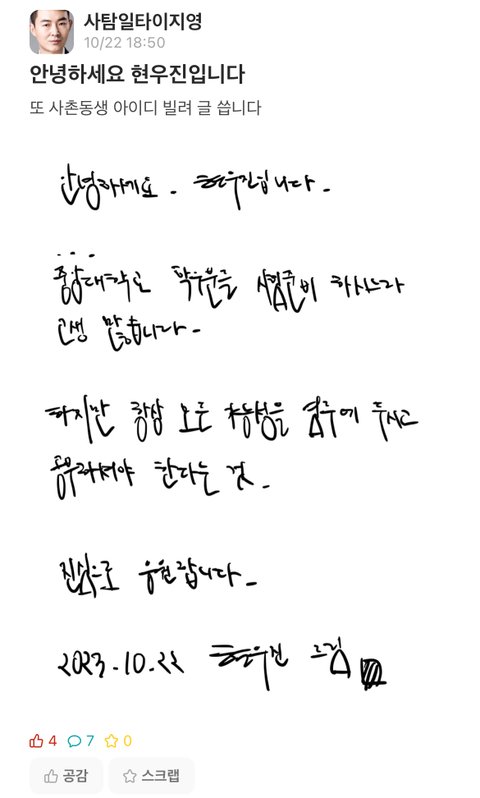 사탐일타이지영
10/22 18:50
안녕하세요 현우진입니다
또 사촌동생 아이디 빌려 글 씁니다
안녕하세요. 현우진입니다.
...
중앙대학교 학우분들 시험준비 하시느라
고생 많습니다.
하지만 항상 모든 가능성을 염두에 두시고
공부하셔야 한다는 것.
진심으로 응원합니다.
2023.10.22 현우진 드림
4 7 0
공감 스크랩